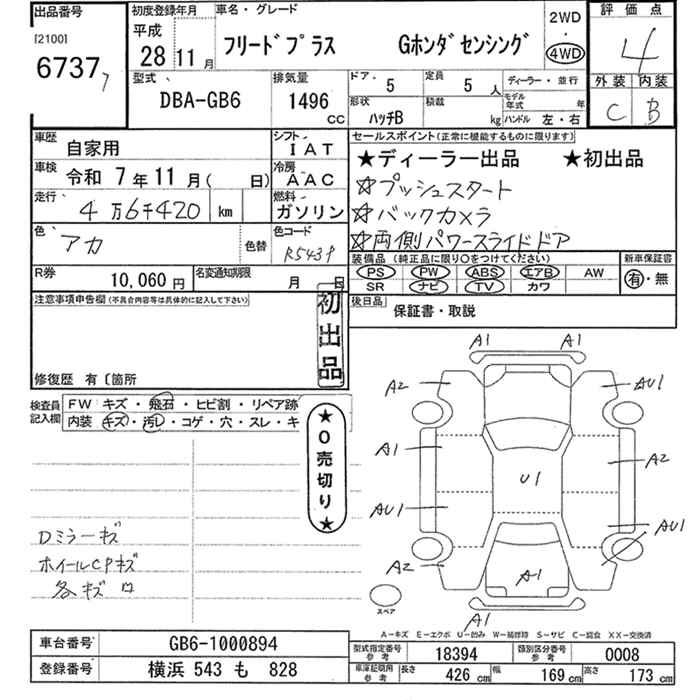 出品番号
[2100]
6737
7
初度登録年月
平成
28 11 月
車名・グレード
フリードプラス Gホンダセンシング
2WD
・
4WD
評価点
4
外装 内装
C B
型式
DBA-GB6
排気量
1496
CC
ドア・ 5
定員 5 人
ディーラー・並行
形状 ハッチB
積載 kg
モデル年式 年
ハンドル 左・右
車歴 自家用
シフト I A T
車検 令和 7 年 11 月( 日)
冷房 A A C
走行 4 万6千420 km
燃料 ガソリン
色 アカ
色替
色コード
R543P
R券 10,060 円
名変通知期限 月 日
セールスポイント(正常に機能するものに限ります)
★ディーラー出品 ★初出品
☆プッシュスタート
☆バックカメラ
☆両側パワースライドドア
装備品 (純正品に限り○をつけてください)
PS PW ABS エアB AW
SR ナビ TV カワ
新車保証書
有・無
後日品 保証書・取説
注意事項申告欄(不具合内容等は具体的に記入して下さい)
初出品
修復歴 有〔箇所
検査員記入欄
FW キズ・飛石・ヒビ割・リペア跡
内装 キズ・汚レ・コゲ・穴・スレ・キ
★0売切り★
Dミラーキズ
ホイールCPキズ
各キズロ
A1 A1
A2 AU1
A1 A2
U1
AU1 AU1
A2
A1
A1
スペア
A−キズ E−エクボ U−凹み W−補修跡 S−サビ C−腐食 XX−交換済
車台番号 GB6-1000894
登録番号 横浜 543 も 828
型式指定番号参考 18394
類別区分番号参考 0008
車庫証明用参考 長さ 426 cm 幅 169 cm 高さ 173 cm